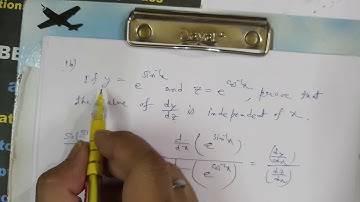 1b)
If y = e^sin⁻¹x and z = e^cos⁻¹x, prove that
the value of dy/dz is independent of x.
d/dx (e^sin⁻¹x) = (dy/dx)
(e^cos⁻¹x) (dz/dx)